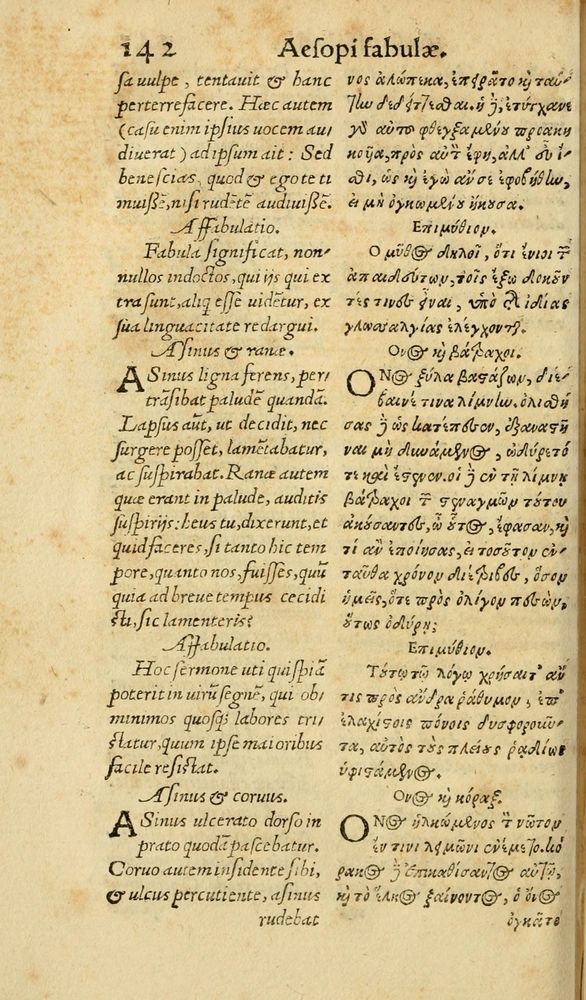 142 Aesopi fabulæ.
sa uulpe, tentauit & hanc
perterrefacere. Hæc autem
(casu enim ipsius uocem au/
diuerat) ad ipsum ait: Sed
bene scias, quod & ego te ti
muissẽ, nisi rudẽtẽ audiuissẽ.
Affabulatio.
Fabula significat, non/
nullos indoctos, qui ijs qui ex
tra sunt, aliq esse uidẽtur, ex
sua linguacitate redargui.
Asinus & ranæ.
ASinus ligna ferens, per/
trãsibat paludẽ quandã.
Lapsus aũt, ut decidit, nec
surgere posset, lamẽtabatur,
ac suspirabat. Ranæ autem
quæ erant in palude, auditis
suspirijs: heus tu, dixerunt, et
quid faceres, si tanto hic tem
pore, quanto nos, fuisses, quũ
quia ad breue tempus cecidi
sti, sic lamenteris?
Affabulatio.
Hoc sermone uti quispiã
poterit in uirũ segnẽ, qui ob
minimos quosq; labores tri/
statur, quum ipse maioribus
facile resistat.
Asinus & coruus.
ASinus ulcerato dorso in
prato quodã pascebatur.
Coruo autem insidente sibi,
& ulcus percutiente, asinus
rudebat
νος ἀλώπεκα, ἐπειρᾶτο ϗ ταύ/
την δεδίττεσθαι. ἡ δὲ, ἐτύγχανε
γὰρ αὐτοῦ φθεγξαμένου προακη
κουῖα, πρὸς αὐτὸν ἔφη, ἀλλ' εὖ ἴ
σθι, ὡς ϗ ἐγὼ ἄν σε ἐφοβήθην,
εἰ μὴ ὀγκωμένου ἤκουσα.
Επιμύθιον.
Ο μῦθος δηλοῖ, ὅτι ἔνιοι τῶν
ἀπαιδεύτων, τοῖς ἔξω δοκοῦν
τές τινες εἶναι, ὑπὸ τῆς ἰδίας
γλωσσαλγίας ἐλέγχονται.
Ονος ϗ βάτραχοι.
ΟΝος ξύλα βαστάζων, διέ/
βαινέ τινα λίμνην. ὀλισθή
σας δὲ ὡς κατέπεσεν, ἐξαναστῆ
ναι μὴ δυνάμενος, ὠδύρετό
τε ϗ ἔστενεν. οἱ δὲ ἐν τῇ λίμνῃ
βάτραχοι τῶν στεναγμῶν τούτου
ἀκούσαντες, ὦ οὗτος, ἔφασαν, ϗ
τί ἂν ἐποίησας, εἰ τοσοῦτον ἐν/
ταῦθα χρόνον διέτριβες, ὅσον
ἡμεῖς, ὅτε πρὸς ὀλίγον πεσὼν,
οὕτως ὀδύρῃ;
Επιμύθιον.
Τούτῳ τῷ λόγῳ χρήσαιτ' ἄν
τις πρὸς ἄνδρα ῥάθυμον, ἐπ'
ἐλαχίστοις πόνοις δυσφοροῦν/
τα, αὐτὸς τοὺς πλείους ῥαδίως
ὑφιστάμενος.
Ονος ϗ κόραξ.
ΟΝος ἡλκωμένος τὸν νῶτον
ἔν τινι λειμῶνι ἐνέμετο. κό
ρακος δὲ ἐπικαθίσαντος αὐτῷ,
ϗ τὸ ἕλκος ξαίνοντος, ὁ ὄνος
ὀγκᾶτο